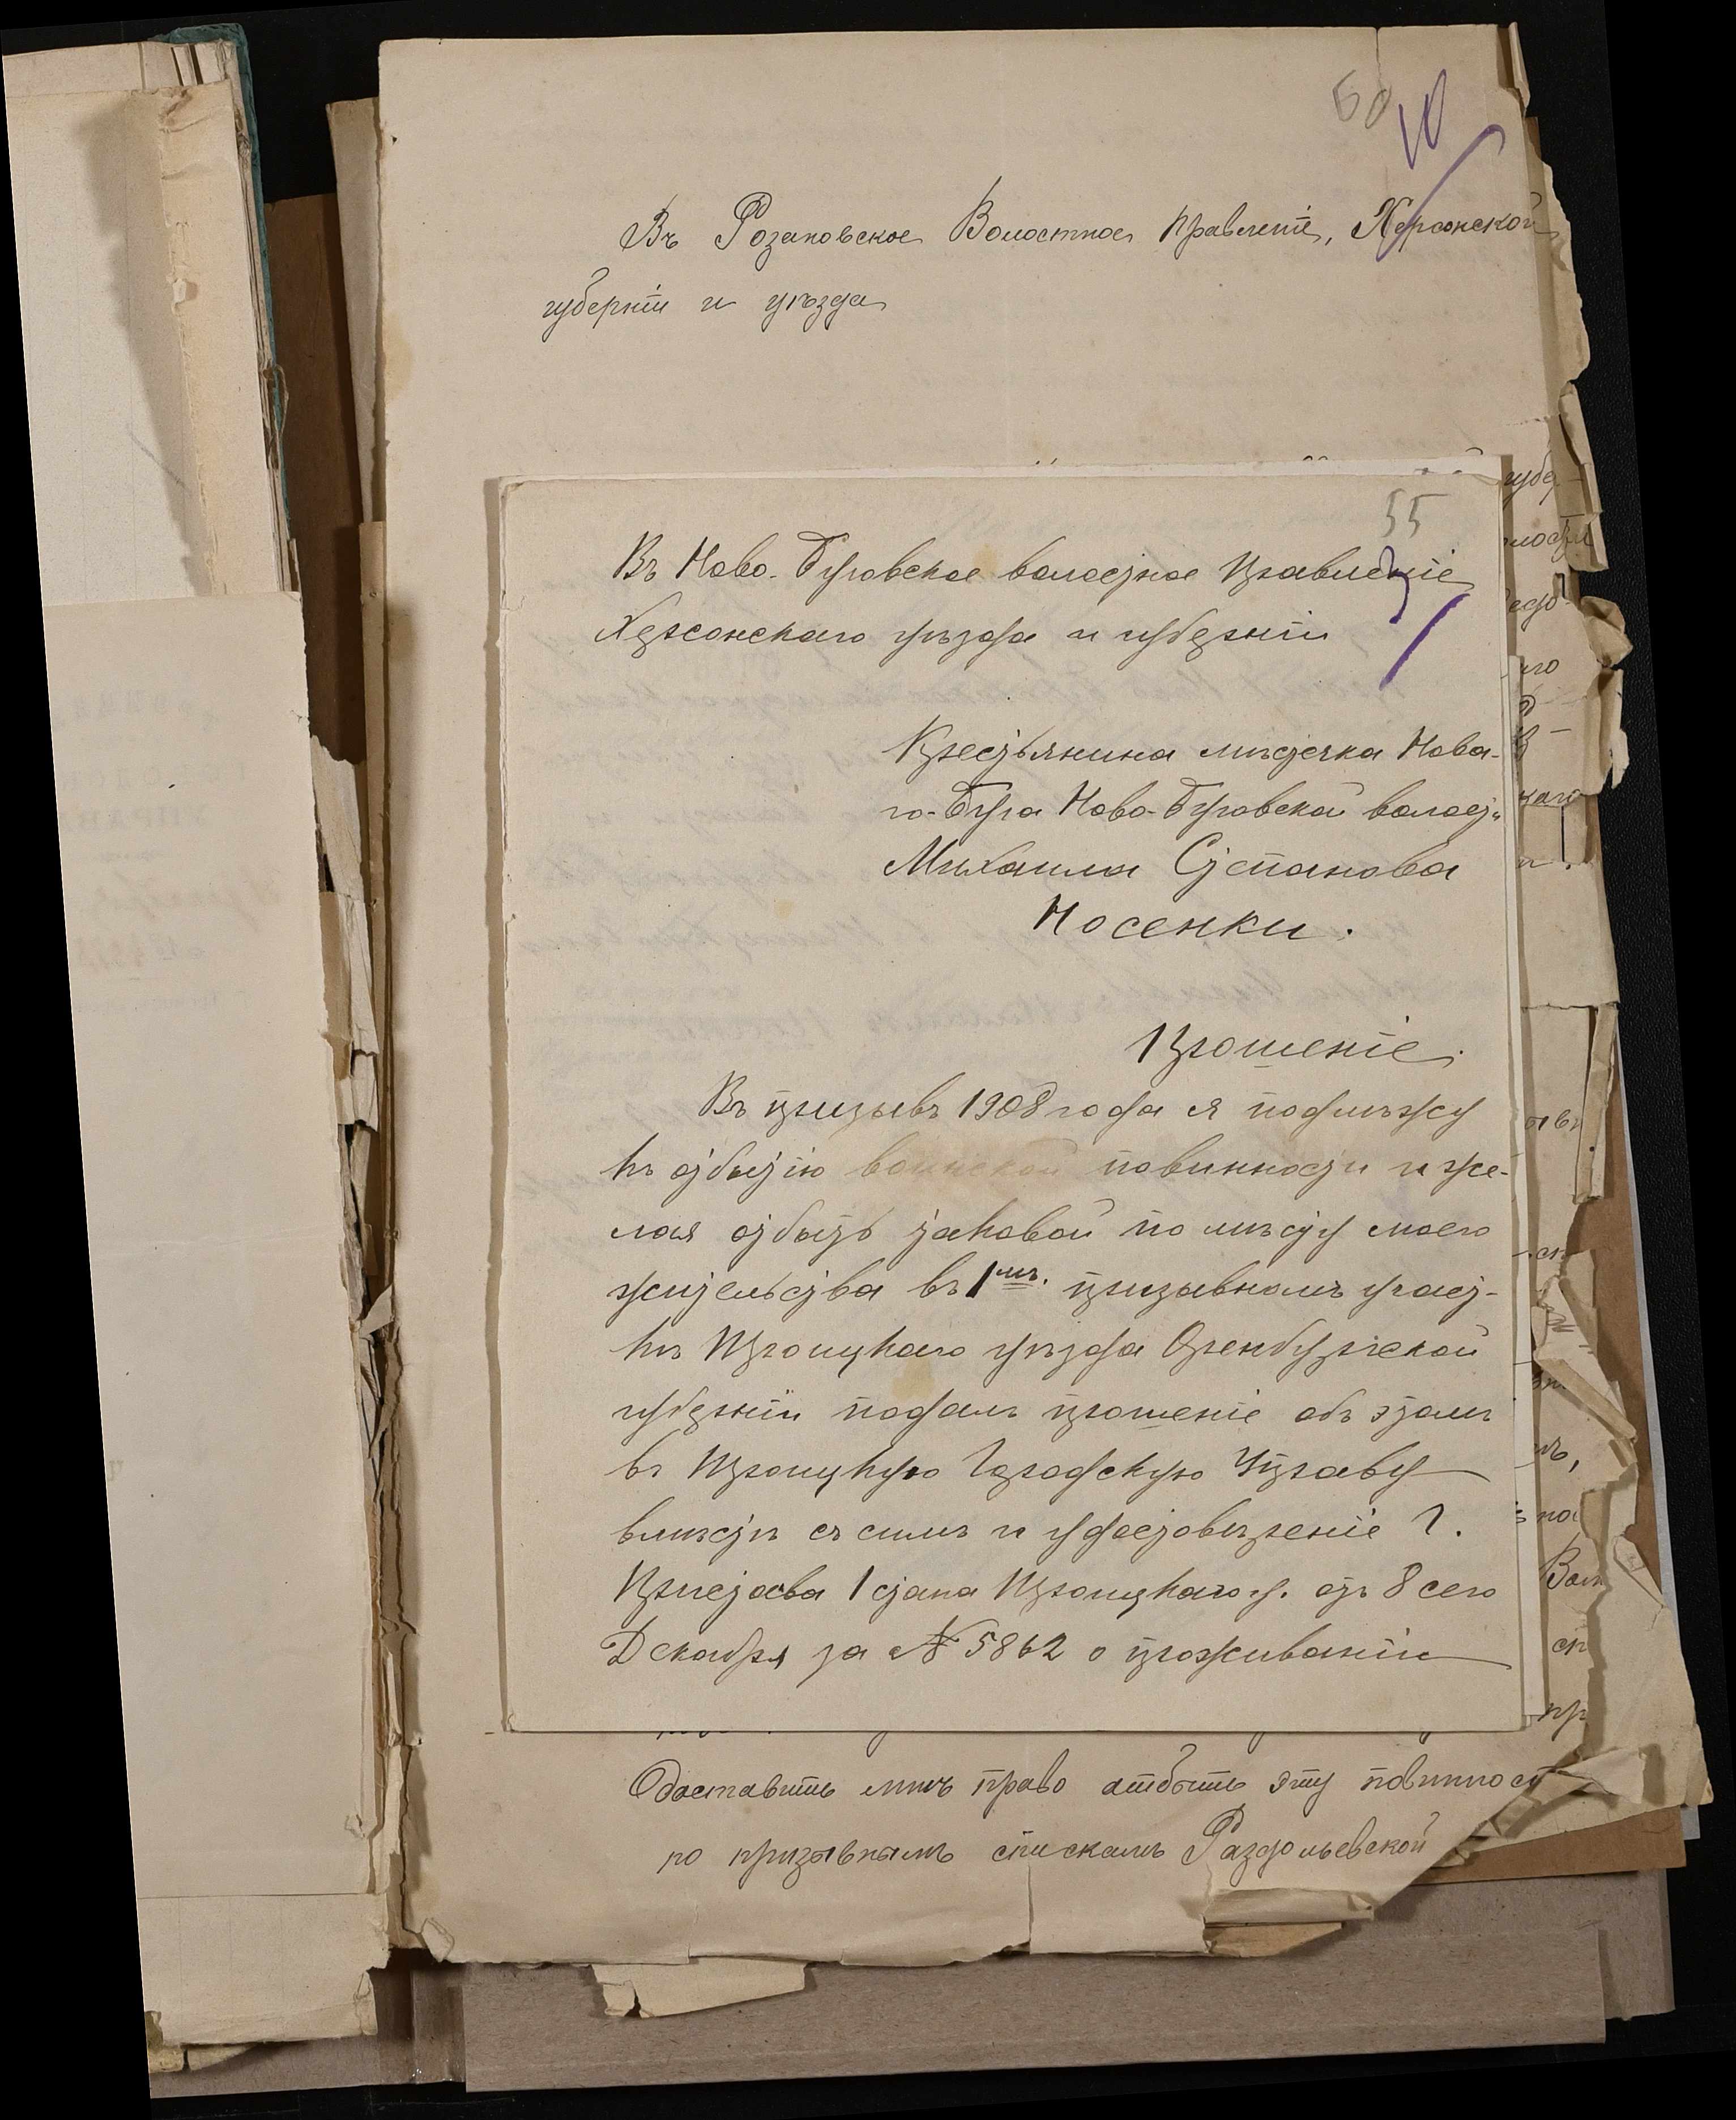 60
10
Въ Розановское Волостное Правленіе, Херсонской
губерніи и уѣзда
55
Въ Ново-Буговское волостное Правленіе
Херсонскаго уѣзда и губерніи
Крестьянина мѣстечка Нова-
го-Буга Ново-Буговской волост.
Михаила Степанова
Носенки.
Прошеніе.
Въ призывъ 1908 года я подлѣжу
къ отбытію воинской повинности и же-
лая отбыть таковой по мѣсту моего
жительства въ 1мъ. призывномъ участ-
кѣ Троицкаго уѣзда Оренбургской
губерніи подалъ прошеніе объ этомъ
въ Троицкую Городскую Управу
вмѣстѣ съ симъ и удостовѣреніе Г.
Пристава 1 стана Троицкаго у. отъ 8 сего
Декабря за № 5862 о проживаніи
доставить мнѣ право отбыть эту повинност
по призывнымъ спискамъ Раздольевской
губер-
каго